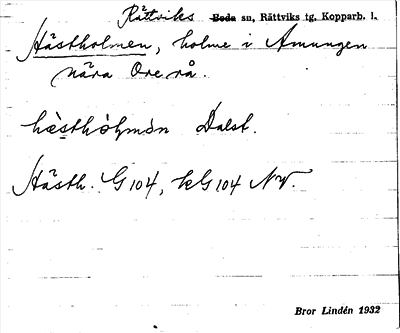 Rättviks Boda sn, Rättviks tg. Kopparb. l.
Hästholmen, holme i Amungen
nära Ore rå.
hæsthòḷmə̀n Dalst.
Hästh. G 104, kG 104 NV.
Bror Lindén 1932